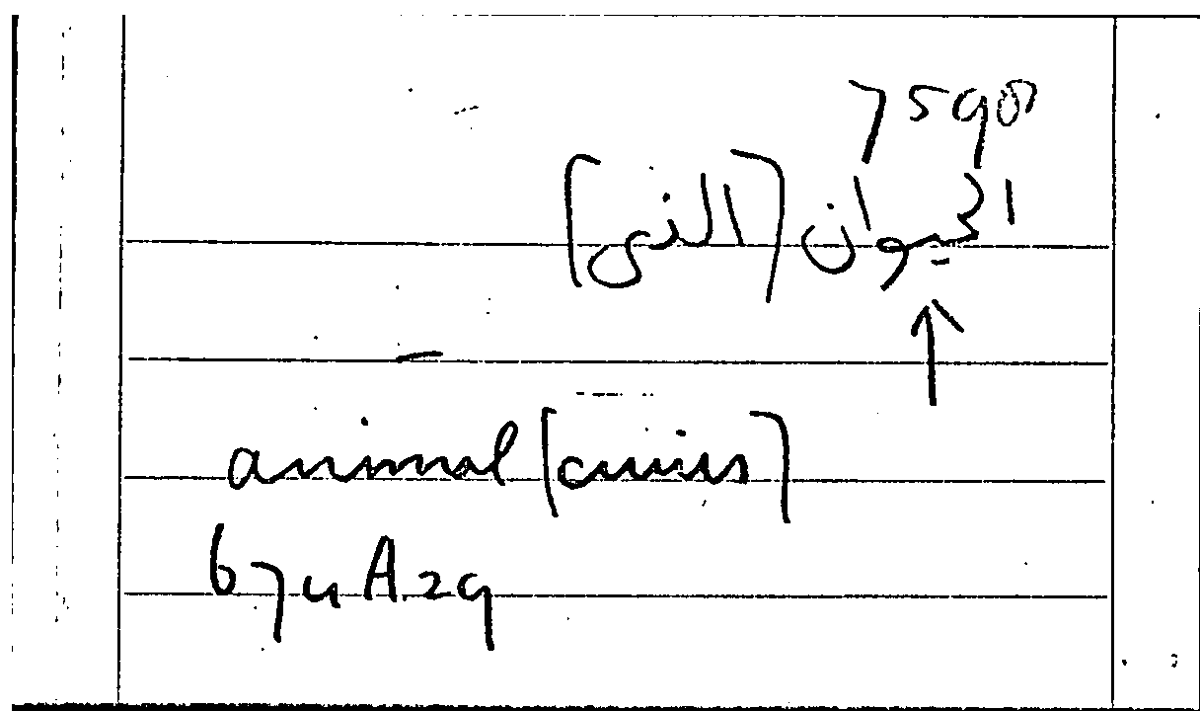 الحيوان (الذي)
animal (cuius)
674A.29